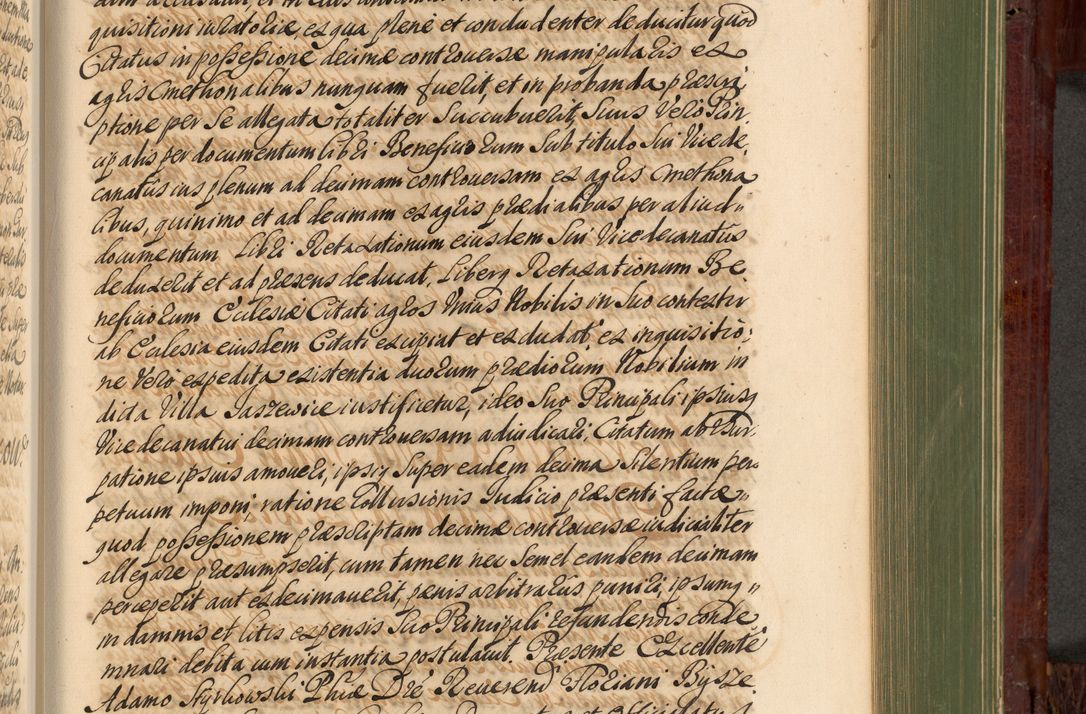 quisitioni iuratoriæ, ex qua plenè et concludenter deducitur quod
Citatus in possessione decimæ controversæ manipularis ex
agris Cmethonalibus nunquam fuerit, et in probanda præscri
ptione per Se allegata totaliter Succubuerit, Suus Verò Prin
cipalis per documentum libri Beneficiorum Sub titulo Sui Vicede
canatûs ius plenum ad decimam controversam ex agris Cmethona
libus, quinimo et ad decimam ex agris prædialibus per aliud
documentum Libri Retaxationum eiusdem Sui Vicedecanatûs
deduxerit et ad præsens deducat, Liberq Retaxationum Be
neficiorum Ecclesiæ Citati agros Unius Nobilis in Suo contextu
ab Ecclesia eiusdem Citati excipiat et excludat, ex inquisitio
ne Verò expedita existentia duorum prædiorum Nobilium in
dicta Villa Jaszewice iustificetur, ideo Suo Principali ipsiusq
Vicedecanatui decimam controversam adiudicari, Citatum ab Usur
patione ipsius amoveri, ipsiq Super eadem decima Silentium per
petuum imponi, ratione Collusionis Iudicio præsenti factæ
quod possessionem præscriptam decimæ controversæ iudicialiter
allegare præsumpserit, cum tamen nec Semel eandem decimam
perceperit aut exdecimaverit, pænis arbitrariis puniri, ipsumq
in damnis et litis expensis Suo Principali refundendis conde
mnari debita cum instantia postulavit. Præsente Excellenti
Adamo Styrkowski Phiæ Drê Reverendi Floriani Bysze